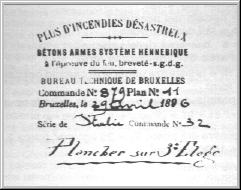 PLUS D'INCENDIES DÉSASTREUX
BÉTONS ARMÉS SYSTÈME HENNEBIQUE
à l'épreuve du feu, breveté-s.g.d.g.
BUREAU TECHNIQUE DE BRUXELLES
Commande N° 879 Plan N° 11
Bruxelles, le 29 Avril 1896
Série de Italie Commande N° 32
Plancher sur 3e Etage